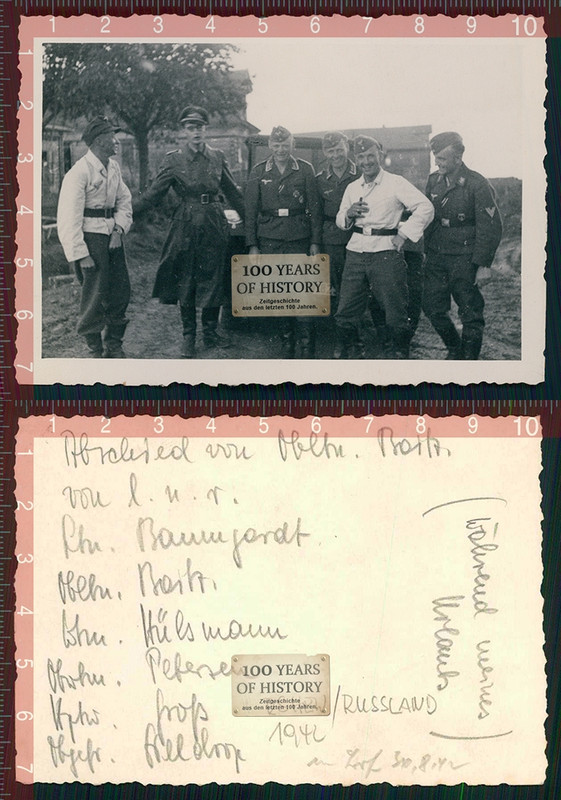 1 2 3 4 5 6 7 8 9 10
2
3
4
5
6
7
100 YEARS
OF HISTORY
Zeitgeschichte
aus den letzten 100 Jahren.
1 2 3 4 5 6 7 8 9 10
2
3
4
5
6
7
Abschied von Obltn. Bartz.
von l. n. r.
Ltn. Baumgardt
Obltn. Bartz.
Hülsmann
Petersen
Groß
Obgefr.
(während meines
Urlaubs)
100 YEARS
OF HISTORY
Zeitgeschichte
aus den letzten 100 Jahren.
/RUSSLAND
1942
30.8.42